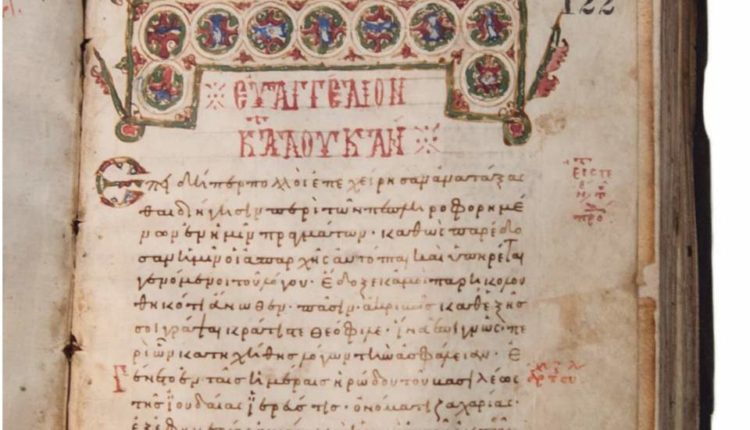 122
ΕΥΑΓΓΕΛΙΟΝ
ΚΑΤ ΛΟΥΚΑΝ
Ἐπειδήπερ πολλοὶ ἐπεχείρησαν ἀνατάξασ
θαι διήγησιν περὶ τῶν πεπληροφορημέ
νων ἐν ἡμῖν πραγμάτων· καθὼς παρέδο
σαν ἡμῖν οἱ ἀπαρχῆς αὐτόπται καὶ ὑπηρέται
γενόμενοι τοῦ λόγου· ἔδοξε κἀμοὶ παρηκολου
θηκότι ἄνωθεν· πᾶσιν ἀκριβῶς καθεξῆς
σοι γράψαι κράτιστε θεόφιλε· ἵνα ἐπιγνῶς πε
ρὶ ὧν κατηχήθης λόγων τὴν ἀσφάλειαν· Ἐ
γένετο ἐν ταῖς ἡμέραις ἡρώδου τοῦ βασιλέως
τῆς ἰουδαίας ἱερεύς τις· ὀνόματι ζαχαρίας·